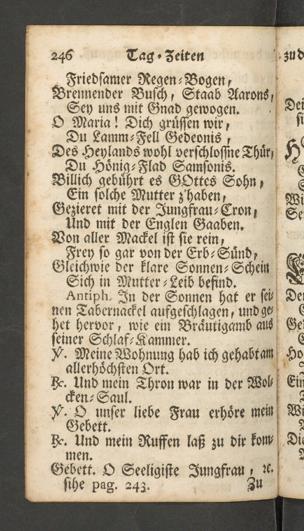 246 Tag-Zeiten
Friedsamer Regen-Bogen,
Brennender Busch, Staab Aarons,
Sey uns mit Gnad gewogen.
O Maria! Dich grüssen wir,
Du Lamm-Fell Gedeonis,
Des Heylands wohl verschloßne Thür,
Du Hönig-Flad Samsonis.
Billich gebührt es GOttes Sohn,
Ein solche Mutter z'haben,
Gezieret mit der Jungfrau-Cron,
Und mit der Englen Gaaben.
Von aller Mackel ist sie rein,
Frey so gar von der Erb-Sünd,
Gleichwie der klare Sonnen-Schein
Sich in Mutter-Leib befind.
Antiph. In der Sonnen hat er sei-
nen Tabernackel aufgeschlagen, und ge-
het hervor, wie ein Bräutigamb aus
seiner Schlaf-Kammer.
℣. Meine Wohnung hab ich gehabt am
allerhöchsten Ort.
℟. Und mein Thron war in der Wol-
cken-Saul.
℣. O unser liebe Frau erhöre mein
Gebett.
℟. Und mein Ruffen laß zu dir kom-
men.
Gebett. O Seeligiste Jungfrau, ꝛc.
sihe pag. 243. Zu